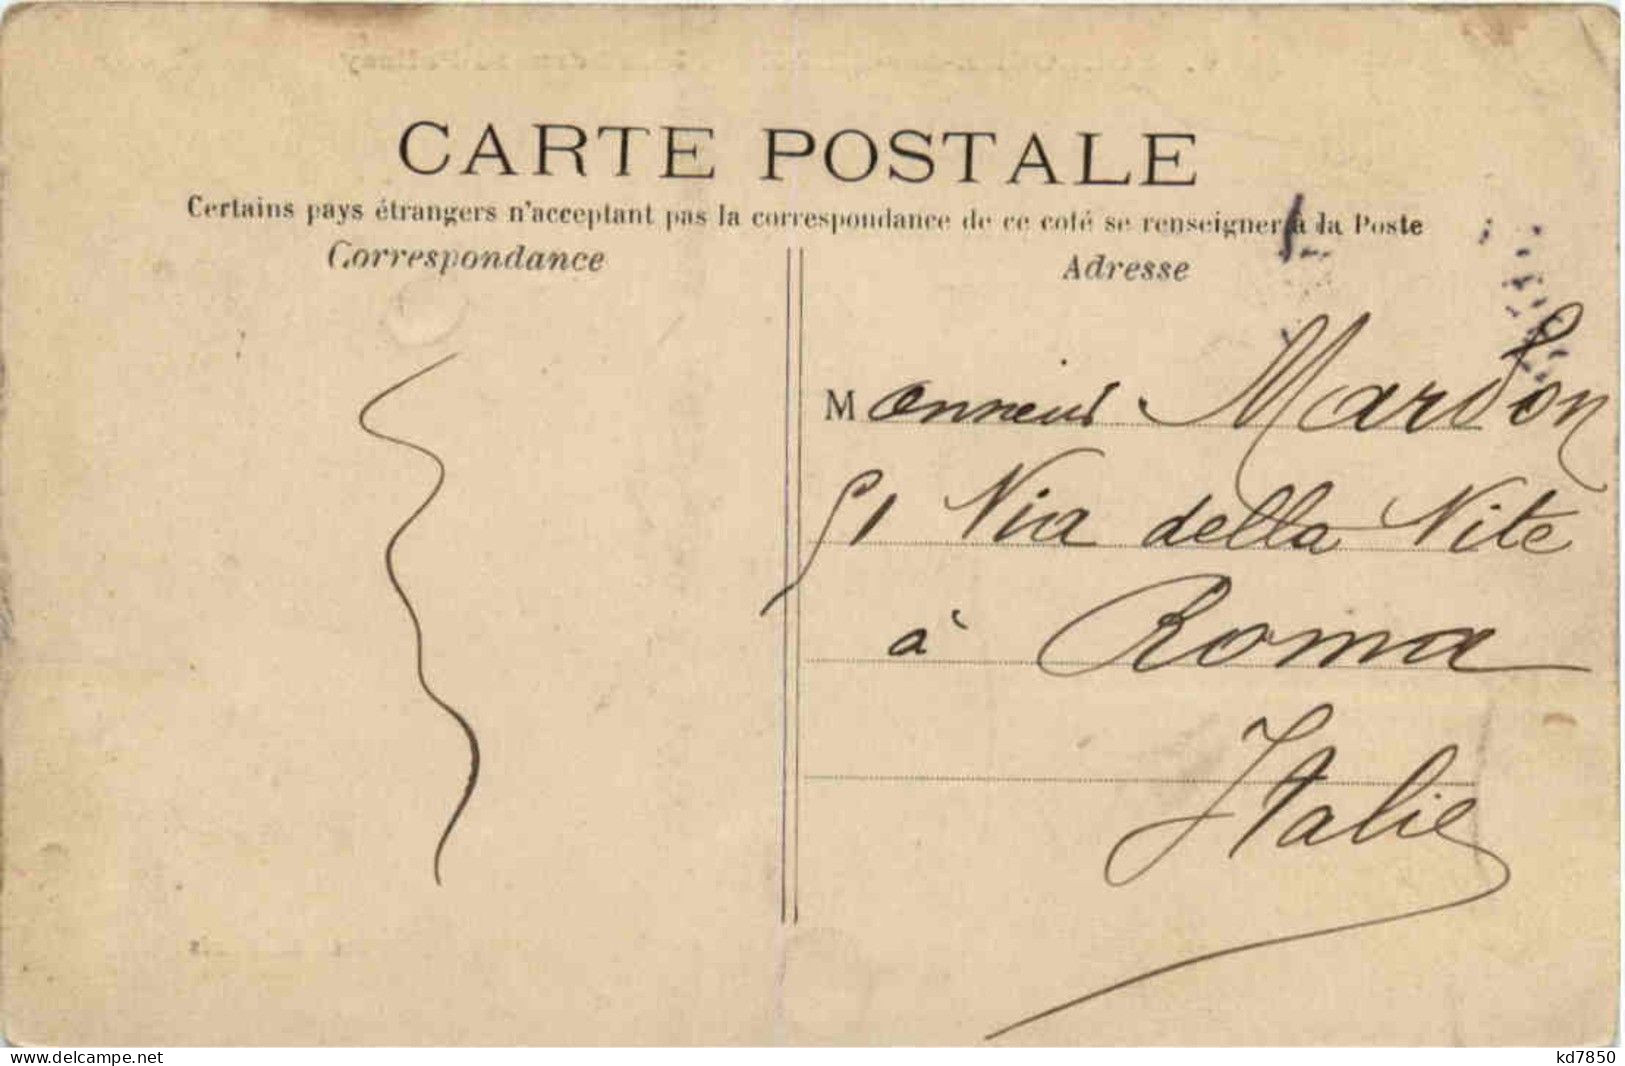 CARTE POSTALE
Certains pays étrangers n'acceptant pas la correspondance de ce coté se renseigner à la Poste
Correspondance
Adresse
Monsieur Mardon
51 Via della Vite
à Roma
Italie
www.delcampe.net
kd7850